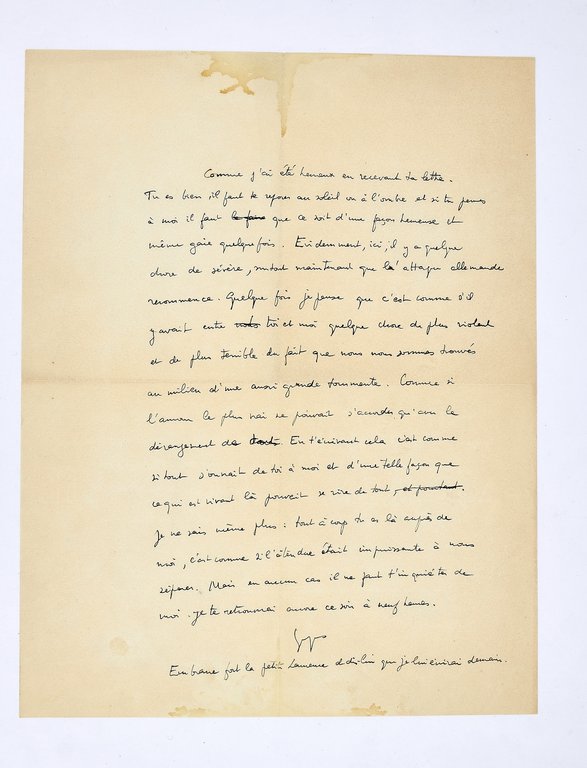 Comme j'ai été heureux en recevant ta lettre.
Tu es bien, il faut te reposer au soleil ou à l'ombre et si tu penses
à moi il faut le fais que ce soit d'une façon heureuse et
même gaie quelquefois. Evidemment, ici, il y a quelque
chose de sévère, surtout maintenant que l'attaque allemande
recommence. Quelque fois je pense que c'est comme s'il
y avait entre toi et moi quelque chose de plus violent
et de plus terrible du fait que nous nous sommes trouvés
au milieu d'une aussi grande tourmente. Comme si
l'amour le plus vrai ne pouvait s'accorder qu'avec le
dérangement de tout. En t'écrivant cela c'est comme
si tout s'ouvrait de toi à moi et d'une telle façon que
ce qui est vivant là pouvait se rire de tout, et pourtant.
Je ne sais même plus : tout à coup tu es là auprès de
moi, c'est comme si l'étendue était impuissante à nous
séparer. Mais en aucun cas il ne faut t'inquiéter de
moi. Je te retrouverai encore ce soir à neuf heures.
Embrasse fort la petite Laurence et dis-lui que je lui écrirai demain.